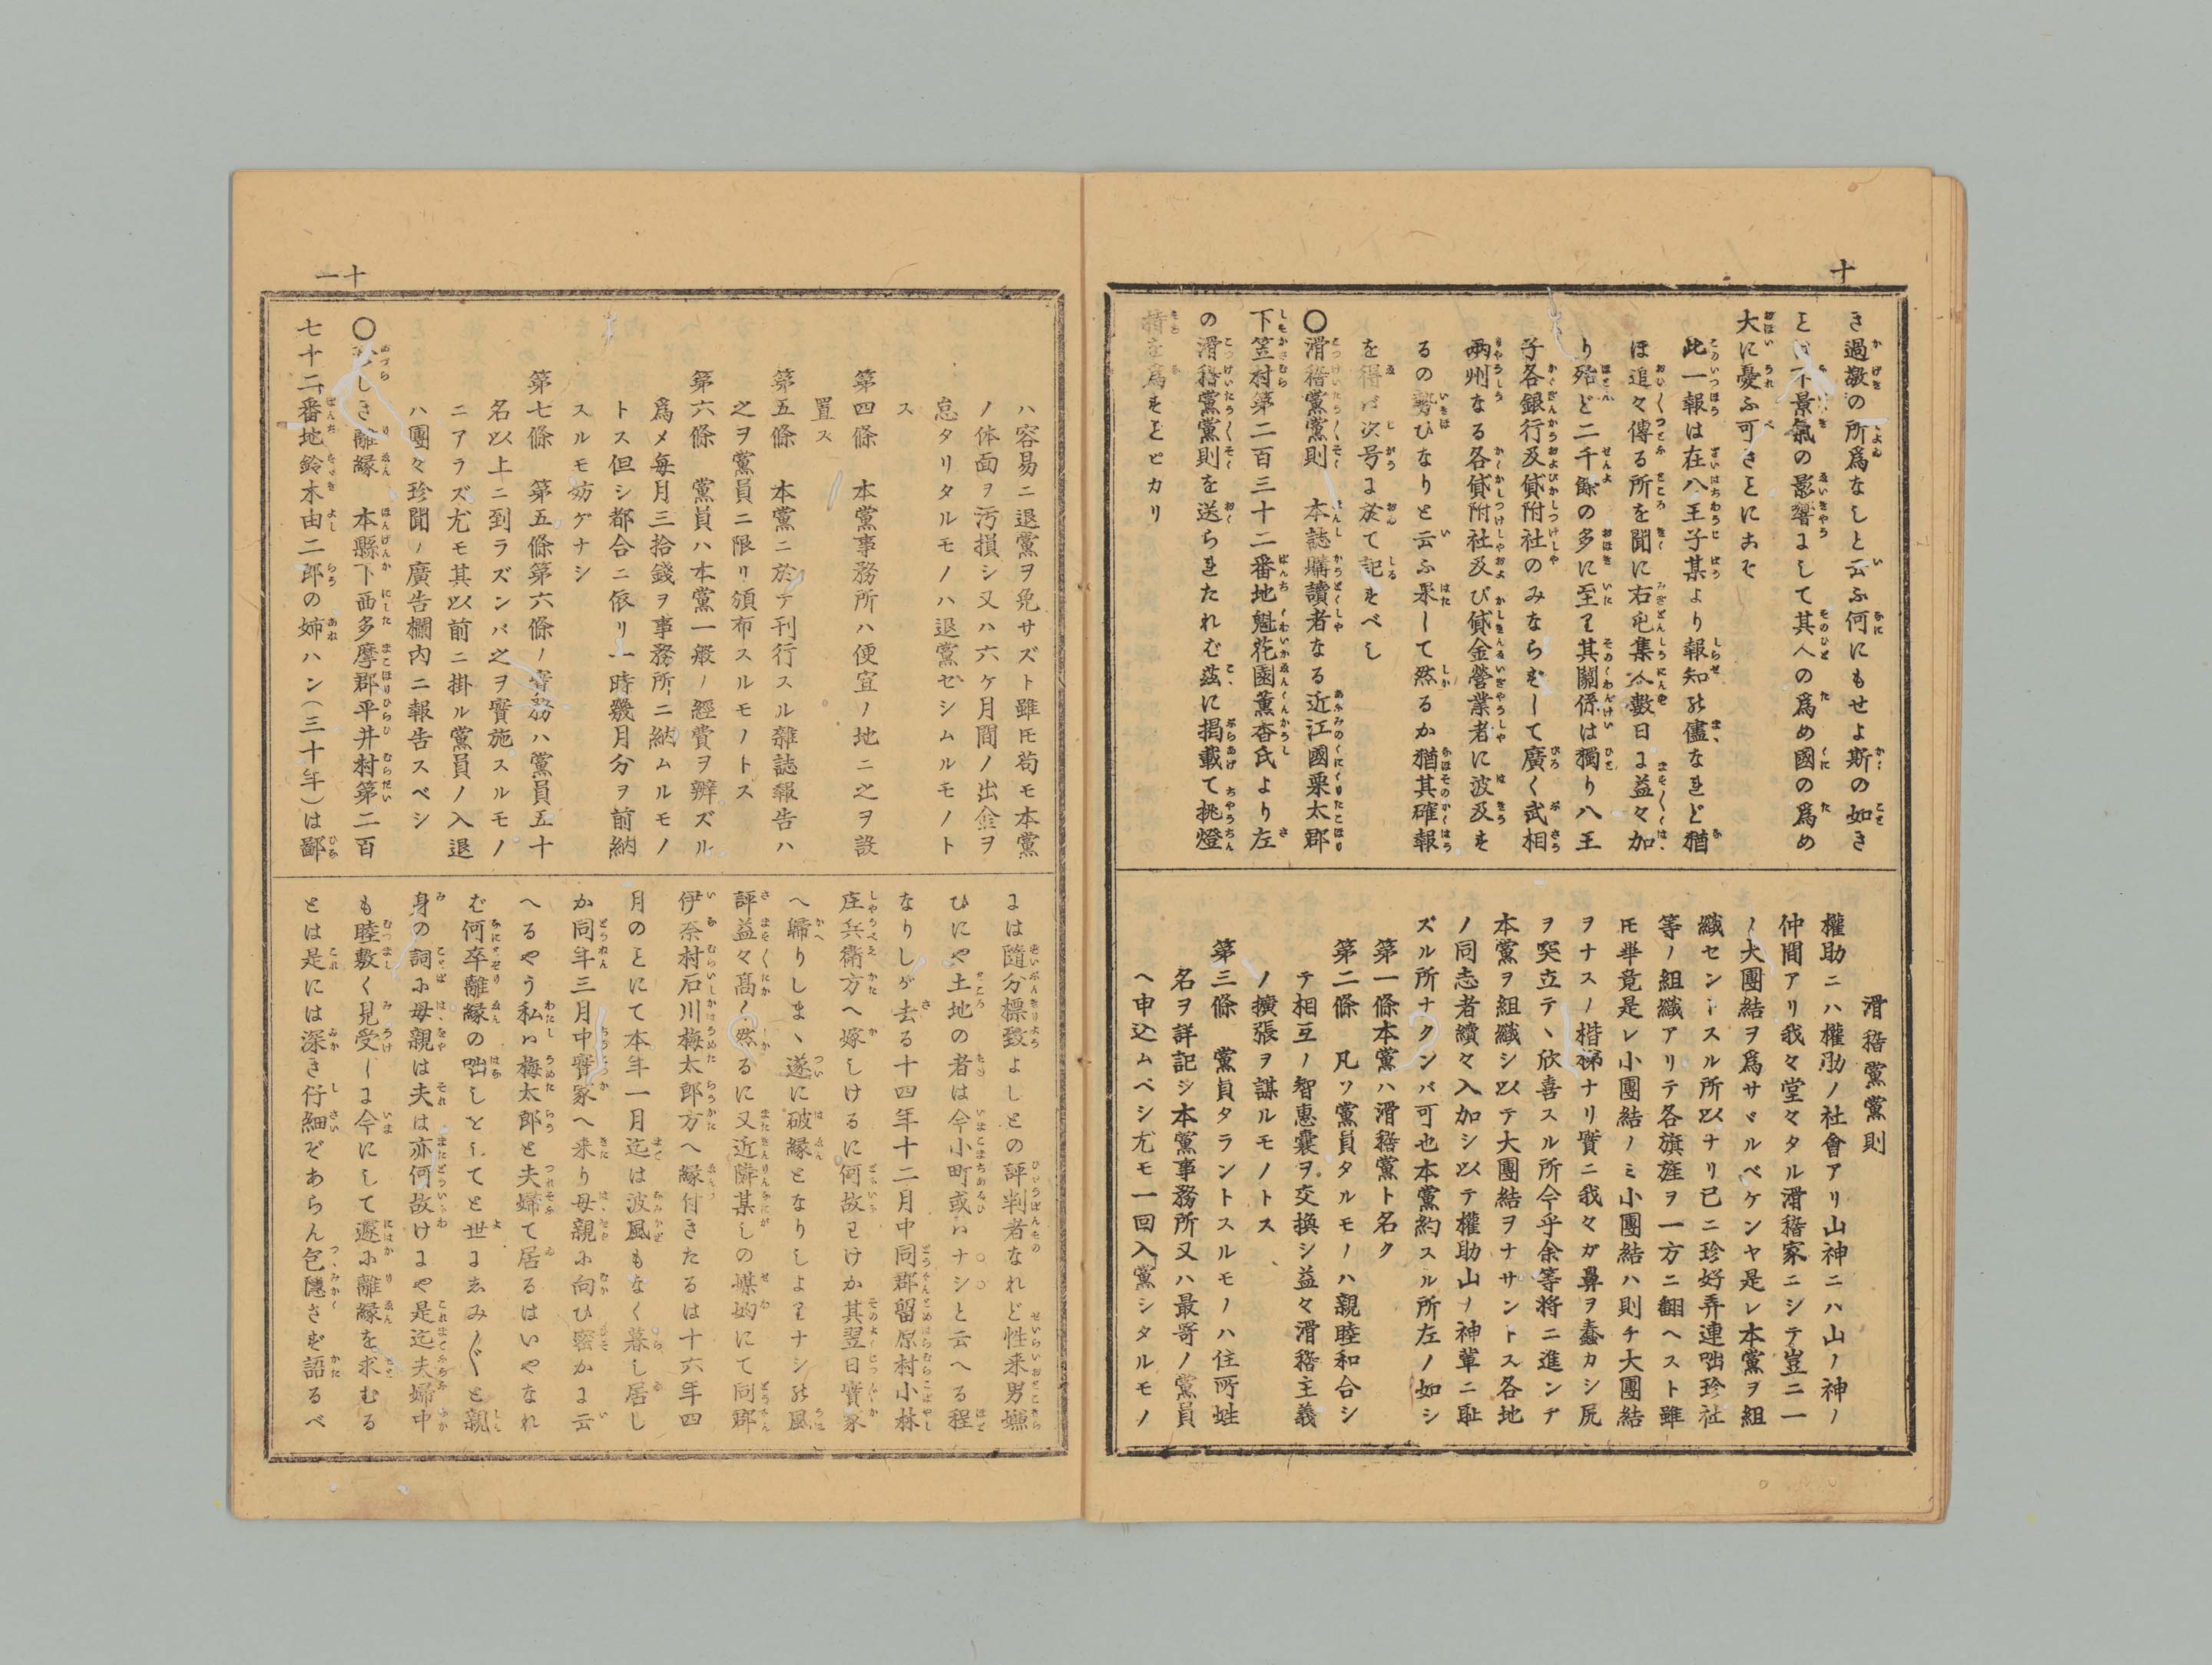 十
き過激の所爲なしと云ふ何にもせよ斯の如き
は不景氣の影響にして其人の爲め國の爲め
大に憂ふ可きことにこそ
此一報は在八王子某より報知の儘なれど猶
ほ追々傳る所を聞に右屯集人數日に益々加
り殆ど二千餘の多に至り其關係は獨り八王
子各銀行及貸附社のみならずして廣く武相
兩州なる各貸附社及び貸金營業者に波及す
るの勢ひなりと云ふ果して然るか猶其確報
を得バ次号に於て記すべし
〇滑稽黨黨則 本誌購讀者なる近江國栗太郡
下笠村第二百三十二番地魁花園薫香氏より左
の滑稽黨黨則を送られたれむ茲に掲載て挑燈
持を爲すことピカリ
滑稽黨黨則
權助ニハ權助ノ社會アリ山神ニハ山ノ神ノ
仲間アリ我々堂々タル滑稽家ニシテ豈ニ一
ノ大團結ヲ爲サヾルベケンヤ是レ本黨ヲ組
織セントスル所以ナリ已ニ珍好弄連咄珍社
等ノ組織アリテ各旗旌ヲ一方ニ翻ヘスト雖
𪜈畢竟是レ小團結ノミ小團結ハ則チ大團結
ヲナスノ楷梯ナリ實ニ我々ガ鼻ヲ蠢カシ尻
ヲ突立テヽ欣喜スル所今乎余等将ニ進ンデ
本黨ヲ組織シ以テ大團結ヲナサントス各地
ノ同志者續々入加シ以テ權助山ノ神輩ニ耻
ズル所ナクンバ可也本黨約スル所左ノ如シ
第一條本黨ハ滑稽黨ト名ク
第二條 凡ソ黨員タルモノハ親睦和合シ
テ相互ノ智惠囊ヲ交換シ益々滑稽主義
ノ擴張ヲ謀ルモノトス
第三條 黨員タラントスルモノハ住所姓
名ヲ詳記シ本黨事務所又ハ最寄ノ黨員
ヘ申込ムベシ尤モ一回入黨シタルモノ
十一
ハ容易ニ退黨ヲ免サズト雖𪜈苟モ本黨
ノ体面ヲ汚損シ又ハ六ケ月間ノ出金ヲ
怠タリタルモノハ退黨セシムルモノト
ス
第四條 本黨事務所ハ便宜ノ地ニ之ヲ設
置ス
第五條 本黨ニ於テ刊行スル雜誌報告ハ
之ヲ黨員ニ限リ頒布スルモノトス
第六條 黨員ハ本黨一般ノ經費ヲ辨ズル
爲メ毎月三拾錢ヲ事務所ニ納ムルモノ
トス但シ都合ニ依リ一時幾月分ヲ前納
スルモ妨ゲナシ
第七條 第五條第六條ノ實務ハ黨員五十
名以上ニ到ラズンバ之ヲ實施スルモノ
ニアラズ尤モ其以前ニ掛ル黨員ノ入退
ハ團々珍聞ノ廣告欄内ニ報告スベシ
〇珍しき離縁 本縣下西多摩郡平井村第二百
七十二番地鈴木由二郎の姉ハン(三十年)は鄙
には隨分標致よしとの評判者なれど性来男嫌
ひにや土地の者は今小町或ハ〇ナシと云へる程
なりしが去る十四年十二月中同郡留原村小林
庄兵衛方へ嫁しけるに何故わけか其翌日實家
へ歸りしまヽ遂に破縁となりしよりナシの風
評益々高く然るに又近隣某しの媒妁にて同郡
伊奈村石川梅太郎方へ縁付きたるは十六年四
月のことにて本年一月迄は波風もなく暮し居し
か同年三月中實家へ来り母親に向ひ密かに云
へるやう私ハ梅太郎と夫婦て居るはいやなれ
む何卒離縁の咄しをしてと世にしみ〴〵と親
身の詞に母親は夫は亦何故けにや是迄夫婦中
も睦敷く見受しに今にして遽に離縁を求むる
とは是には深き仔細ぞあらん包隱さず語るべ